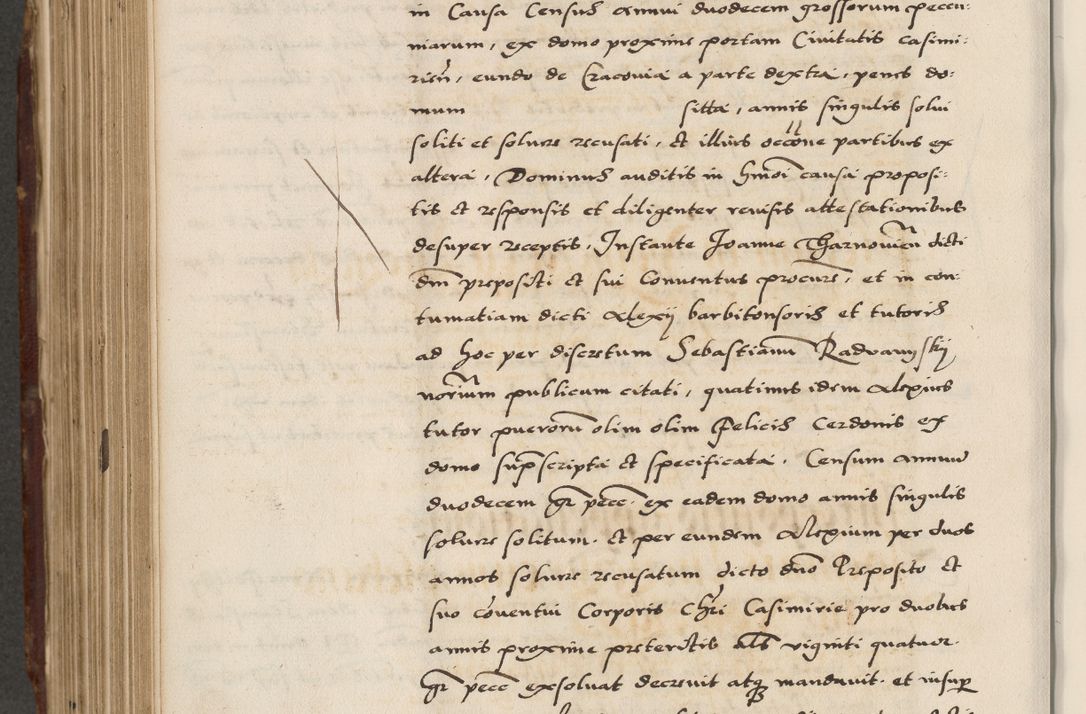 in Causa Census Annui duodecem grossorum pecu-
niarum, ex domo proxime portam Civitatis casimi:
rien̄, eundo de Cracovia a parte dextra, penes do:
mum sitta, annis singulis solui
soliti et soluere recusati, et illius occōne partibus ex
altera, Dominus auditis in hm̄oi causa proposi:
tis et responsis et diligenter reuisis attestationibus
desuper receptis, Instante Joanne Tharnovien̄ dicti
dn̄i prepositi et sui Conuentus procure, et in con:
tumatiam dicti Alexij barbitonsoris et tutoris
ad hoc per discretum Sebastianū Radvanskij
notrium publicum citati, quatinus idem Alexius
tutor puerorū olim olim Felicis Cerdonis ex
domo sup̄scripta et specificata, Censum annuū
duodecem gr̄ pecc̄. ex eadem domo annis singulis
soluere solitum. et per eundem Alexium per duos
annos soluere recusatum dicto dn̄o Preposito et
suo cōventui Corporis Chr̄i Casimirie pro duobus
annis proxime preteritis als̄ viginti quatuor
gr̄ pecc̄ exsoluat decreuit atq̨ mandauit. et insup̄